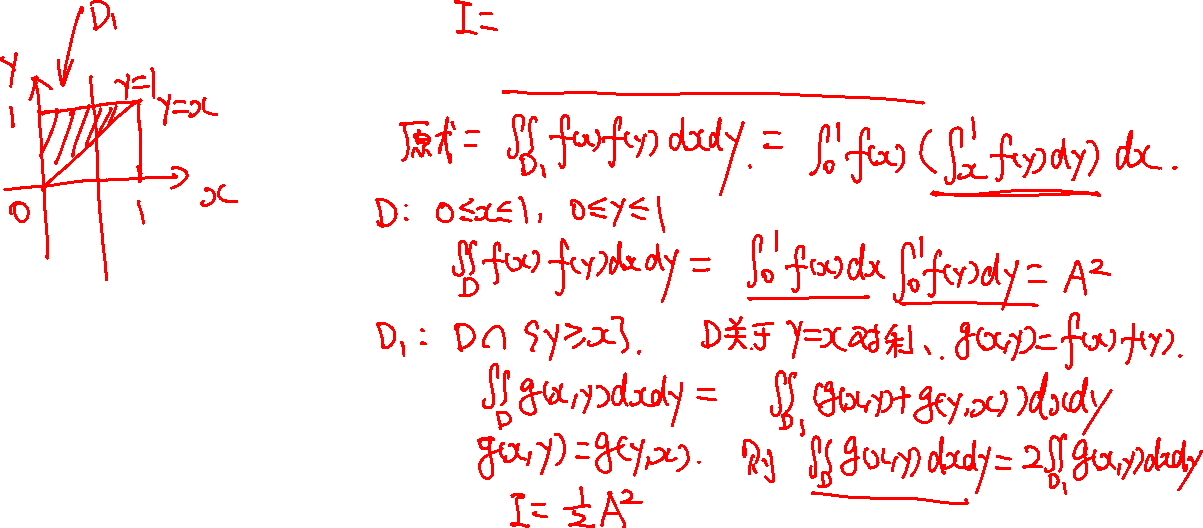 I=
D₁
y
1
y=1
y=x
0
1
x
原式= ∬_{D₁} f(x)f(y) dxdy. = ∫₀¹ f(x) (∫ₓ¹ f(y)dy) dx.
D: 0≤x≤1, 0≤y≤1
∬_D f(x) f(y)dxdy = ∫₀¹ f(x)dx ∫₀¹ f(y)dy = A²
D₁: D∩{y≥x}. D关于 y=x对称、g(x,y)=f(x)f(y).
∬_D g(x,y)dxdy = ∬_{D₁} (g(x,y)+g(y,x))dxdy
g(x,y)=g(y,x). 则 ∬_D g(x,y) dxdy=2∬_{D₁} g(x,y)dxdy
I= ½A²